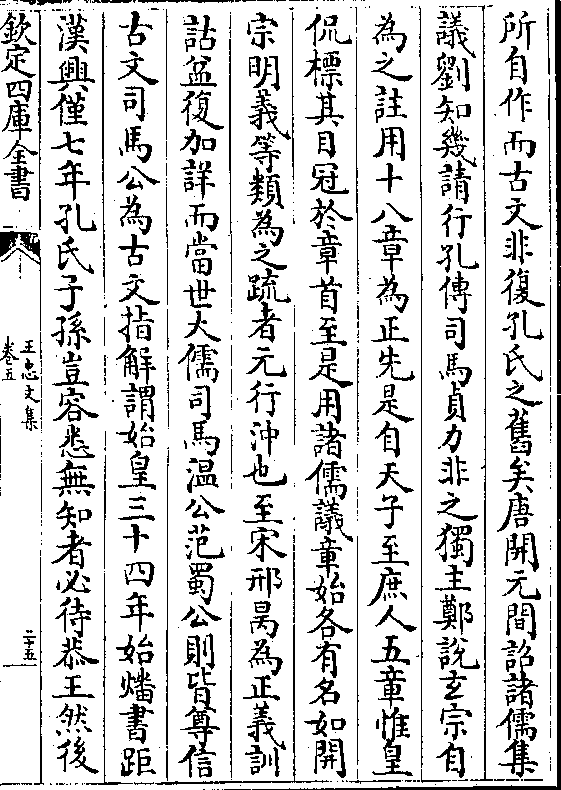 所自作而古文非復孔氏之舊矣唐開元間詔諸儒集
議劉知幾請行孔傳司馬貞力非之獨主鄭說玄宗自
為之註用十八章為正先是自天子至庶人五章惟皇
侃標其目冠於章首至是用諸儒議章始各有名如開
宗明義等類為之疏者元行沖也至宋邢昺為正義訓
詁益復加詳而當世大儒司馬溫公范蜀公則皆尊信
古文司馬公為古文指解謂始皇三十四年始燔書距
漢興僅七年孔氏子孫豈容悉無知者必待恭王然後
欽定四庫全書
王忠文集
卷五
二十五